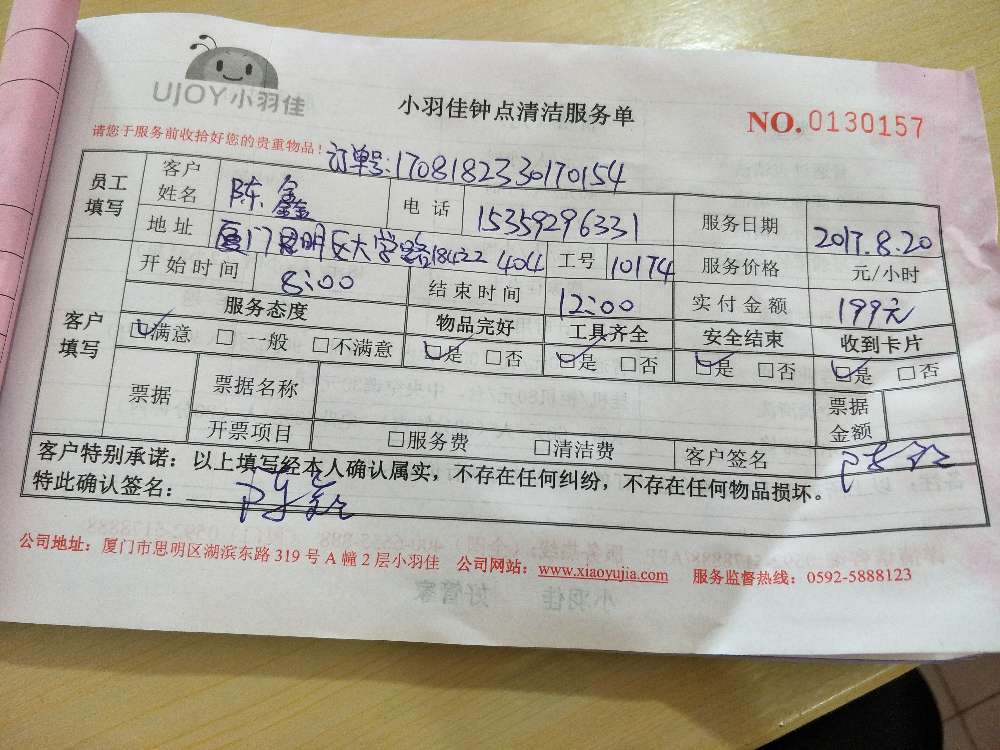 UJOY小羽佳
小羽佳钟点清洁服务单
NO.0130157
请您于服务前收拾好您的贵重物品！
订单号:1708182330170154
员工填写 客户姓名 陈鑫 电话 15359296331 服务日期 2017.8.20
地址 厦门思明区大学路18422 404 工号 10174 服务价格 元/小时
开始时间 8:00 结束时间 12:00 实付金额 199元
客户填写 服务态度 物品完好 工具齐全 安全结束 收到卡片
☑满意 □一般 □不满意 ☑是 □否 ☑是 □否 ☑是 □否 ☑是 □否
票据 票据名称 票据金额
开票项目 □服务费 □清洁费 客户签名 陈鑫
客户特别承诺：以上填写经本人确认属实，不存在任何纠纷，不存在任何物品损坏。
特此确认签名： 陈鑫
公司地址：厦门市思明区湖滨东路319号A幢2层小羽佳 公司网站：www.xiaoyujia.com 服务监督热线：0592-5888123